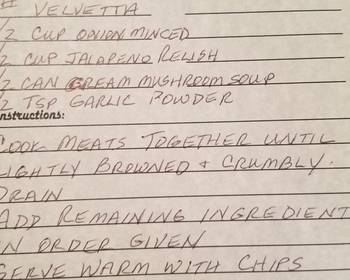 # VELVETTA
/2 CUP ONION MINCED
/2 CUP JALAPENO RELISH
/2 CAN CREAM MUSHROOM SOUP
/2 TSP GARLIC POWDER
nstructions:
COOK MEATS TOGETHER UNTIL
IGHTLY BROWNED + CRUMBLY.
DRAIN
ADD REMAINING INGREDIENT
IN ORDER GIVEN
SERVE WARM WITH CHIPS